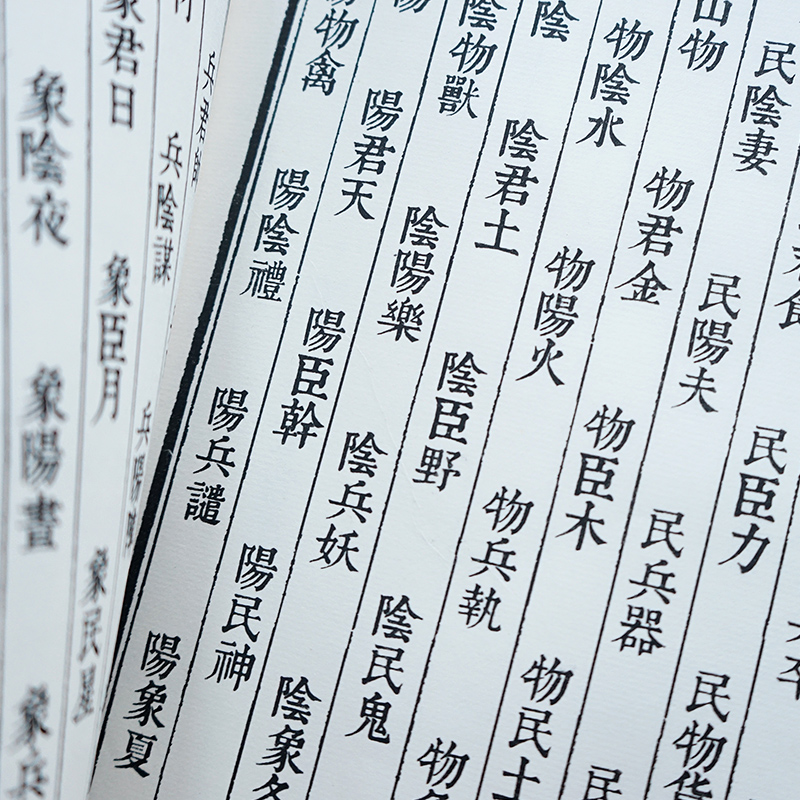 民臣力 民物貨
民陰妻 民陽夫 民兵器 民
山物 物君金 物臣木 物民土
物陰水 物陽火 物兵執 物
陰 陰君土 陰臣野 陰民鬼
陰物獸 陰陽樂 陰兵妖 陰象冬
陽 陽君天 陽臣幹 陽民神
物禽 陽陰禮 陽兵譴 陽象夏
兵君
兵陰謀 兵陽
象君日 象臣月 象民星
象陰夜 象陽晝 象兵